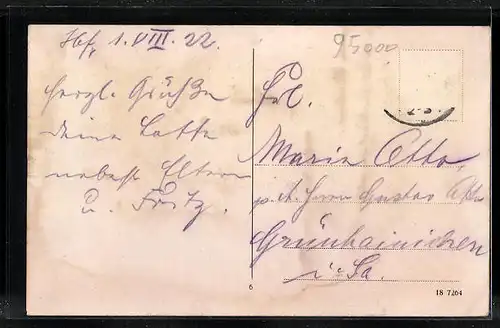 Hbf, 1. VIII. 22.
95000
herzl. Grüße
deine Lotte
nebst Eltern
u. Fritz.
Frl.
Marie Otto,
p. A. Herrn Gustav Otto
Grünhainichen
i. Sa.
6
18 7264